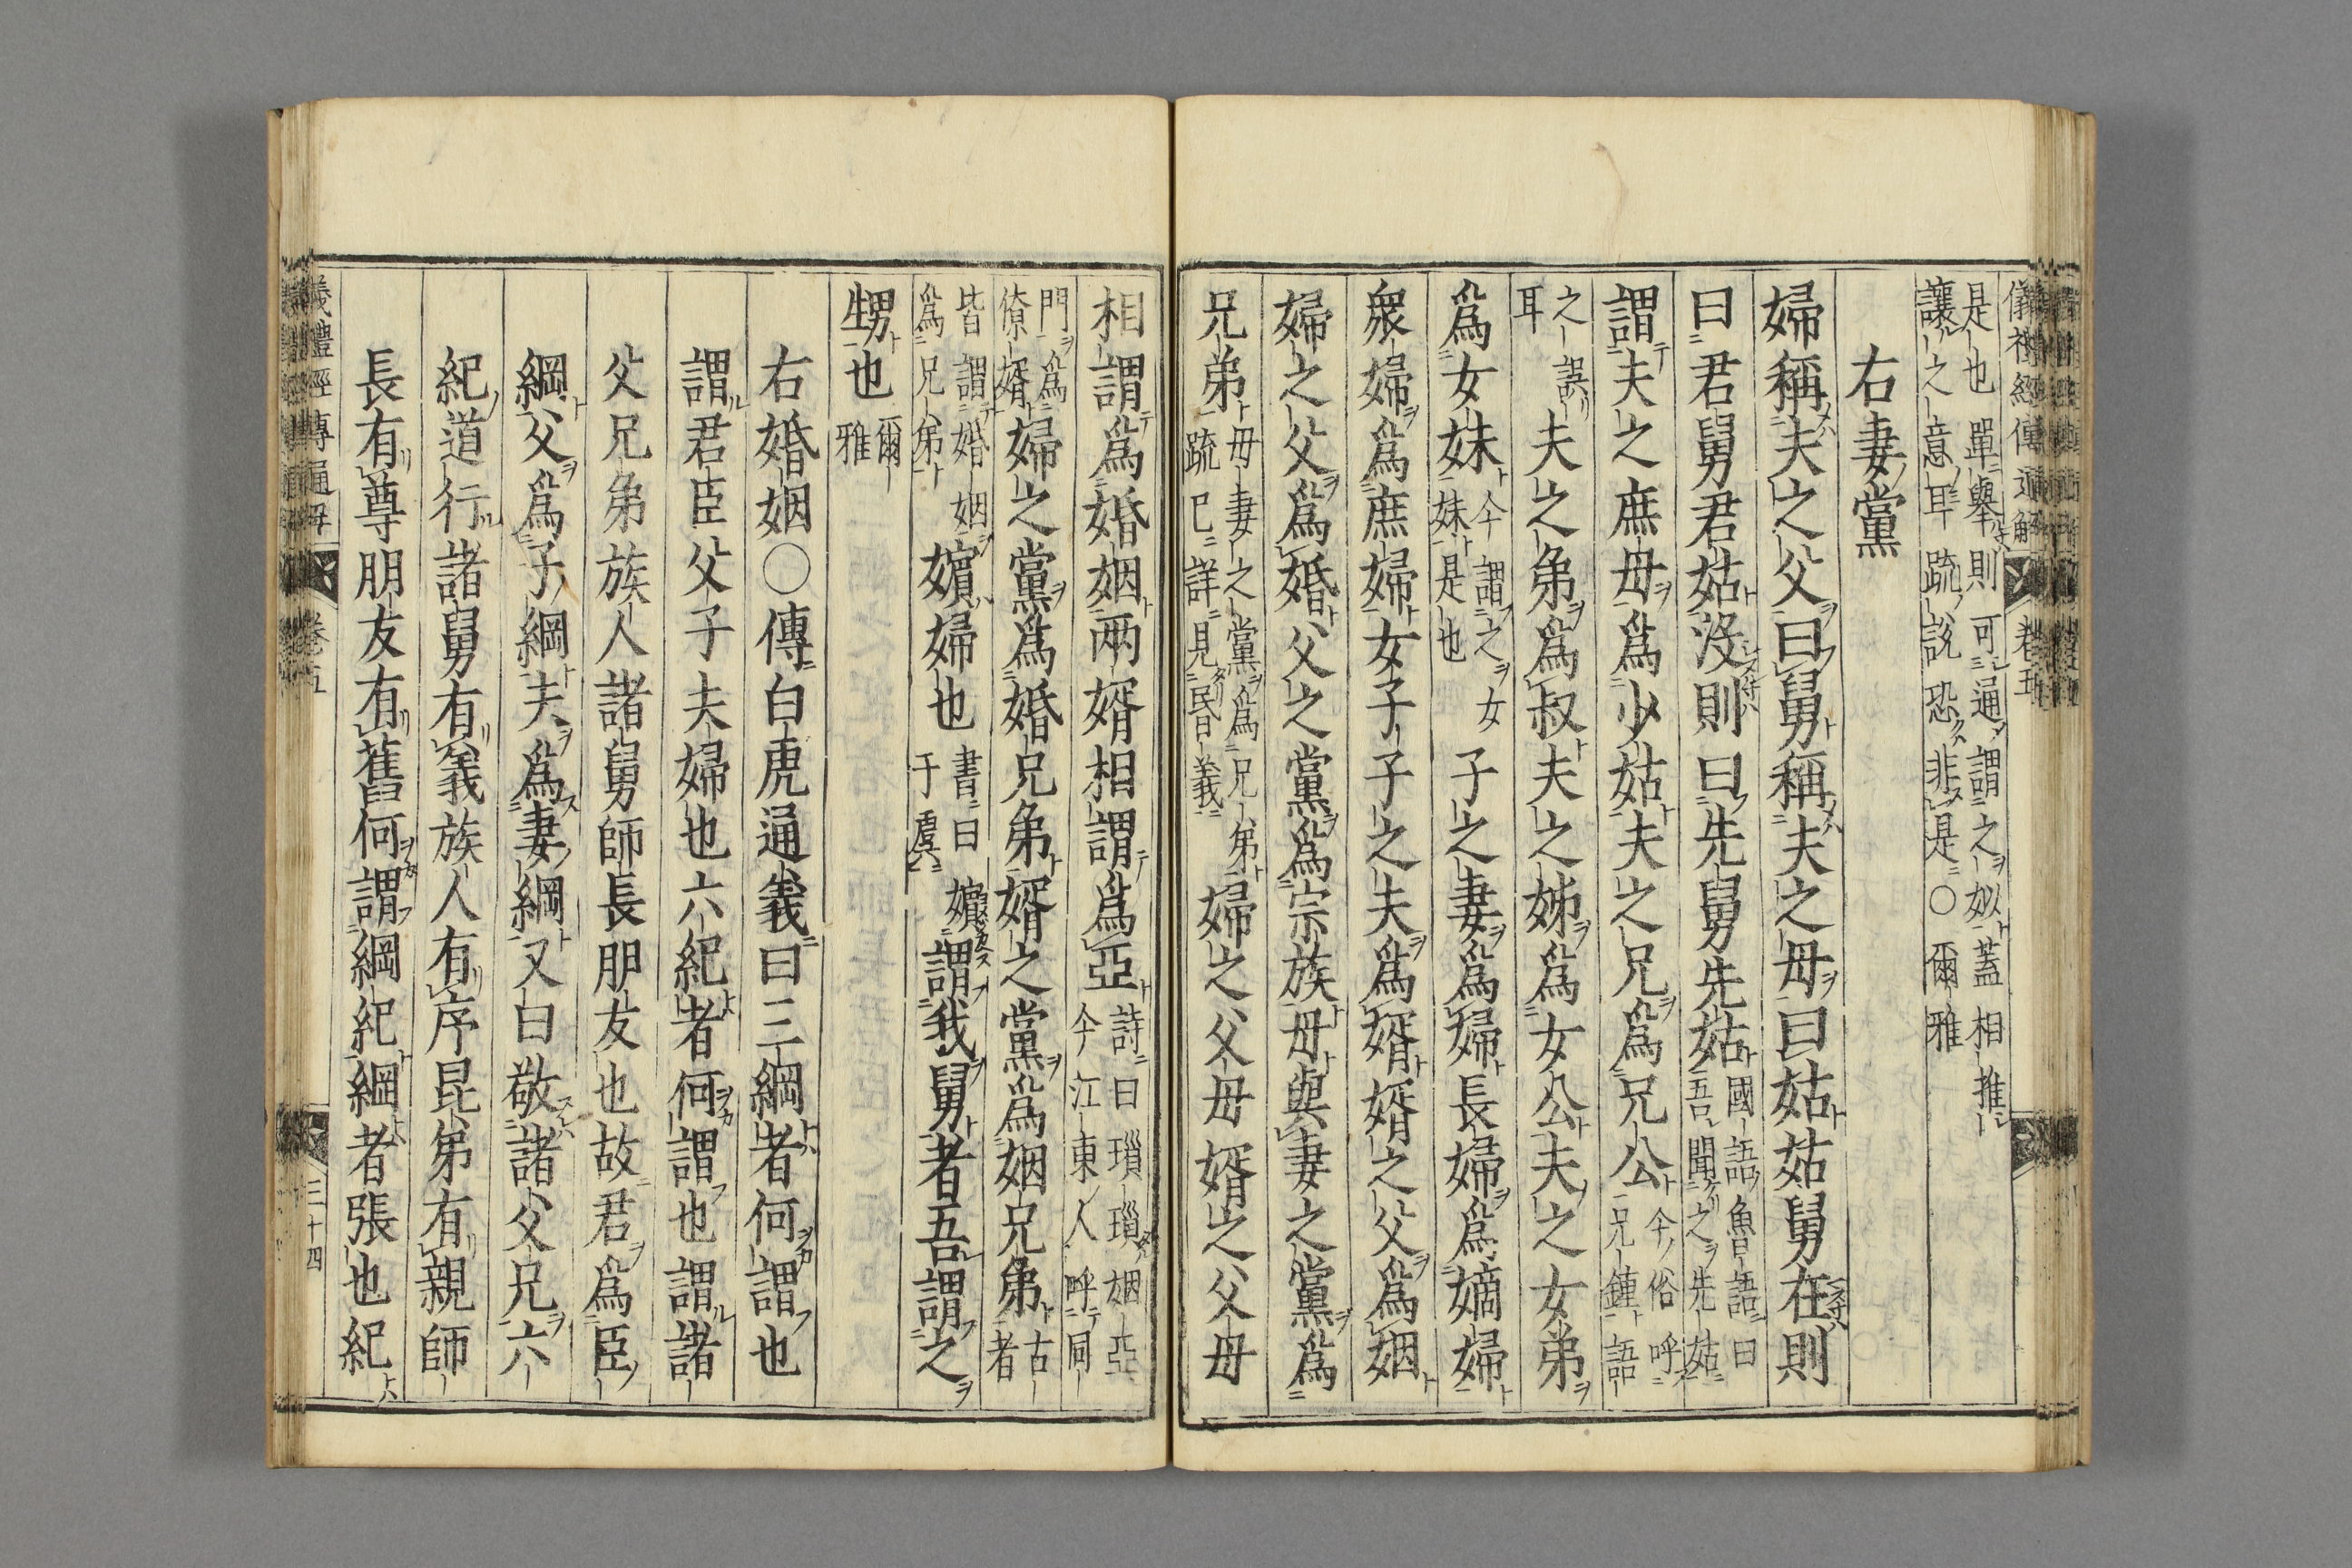 儀禮經傳通解 卷五
是也單舉則可通謂之姒蓋相推
讓之意耳疏說恐非是○爾雅
右妻黨
婦稱夫之父曰舅稱夫之母曰姑姑舅在則
曰君舅君姑沒則曰先舅先姑國語魯語曰吾聞之先姑
謂夫之庶母為少姑夫之兄為兄公今俗呼兄鍾語
之誤耳夫之弟為叔夫之姊為女公夫之女弟
為女妹今謂之女妹是也子之妻為婦長婦為嫡婦
衆婦為庶婦女子子之夫為壻壻之父為姻
婦之父為婚父之黨為宗族母與妻之黨為
兄弟母妻之黨為兄弟疏已詳見昬義婦之父母壻之父母
相謂為婚姻兩壻相謂為亞詩曰瑣瑣姻亞今江東人呼同
門為僚壻婦之黨為婚兄弟壻之黨為姻兄弟古者
皆謂婚姻為兄弟嬪婦也書曰嬪于虞謂我舅者吾謂之
甥也爾雅
右婚姻○傳白虎通義曰三綱者何謂也
謂君臣父子夫婦也六紀者何謂也謂諸
父兄弟族人諸舅師長朋友也故君為臣
綱父為子綱夫為妻綱又曰敬諸父兄六
紀道行諸舅有義族人有序昆弟有親師
長有尊朋友有舊何謂綱紀綱者張也紀
儀禮經傳通解 卷五 三十四